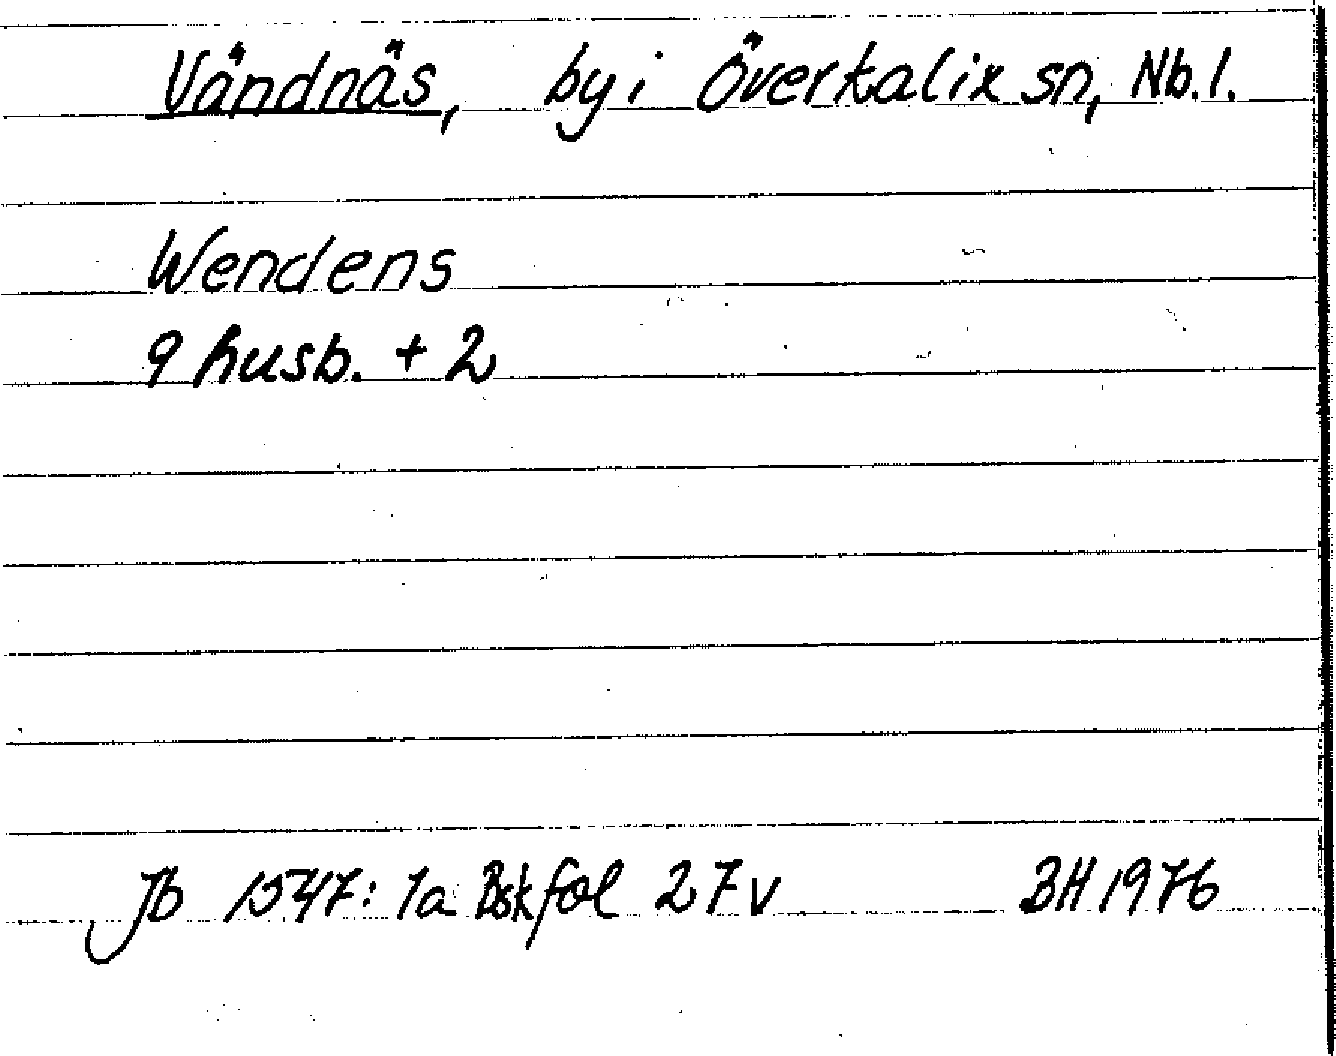 Vändnäs, by i Överkalix sn, Nb.l.
Wendens
9 husb. + 2
Jb 1547: 1a Bsk fol 27v BH 1976